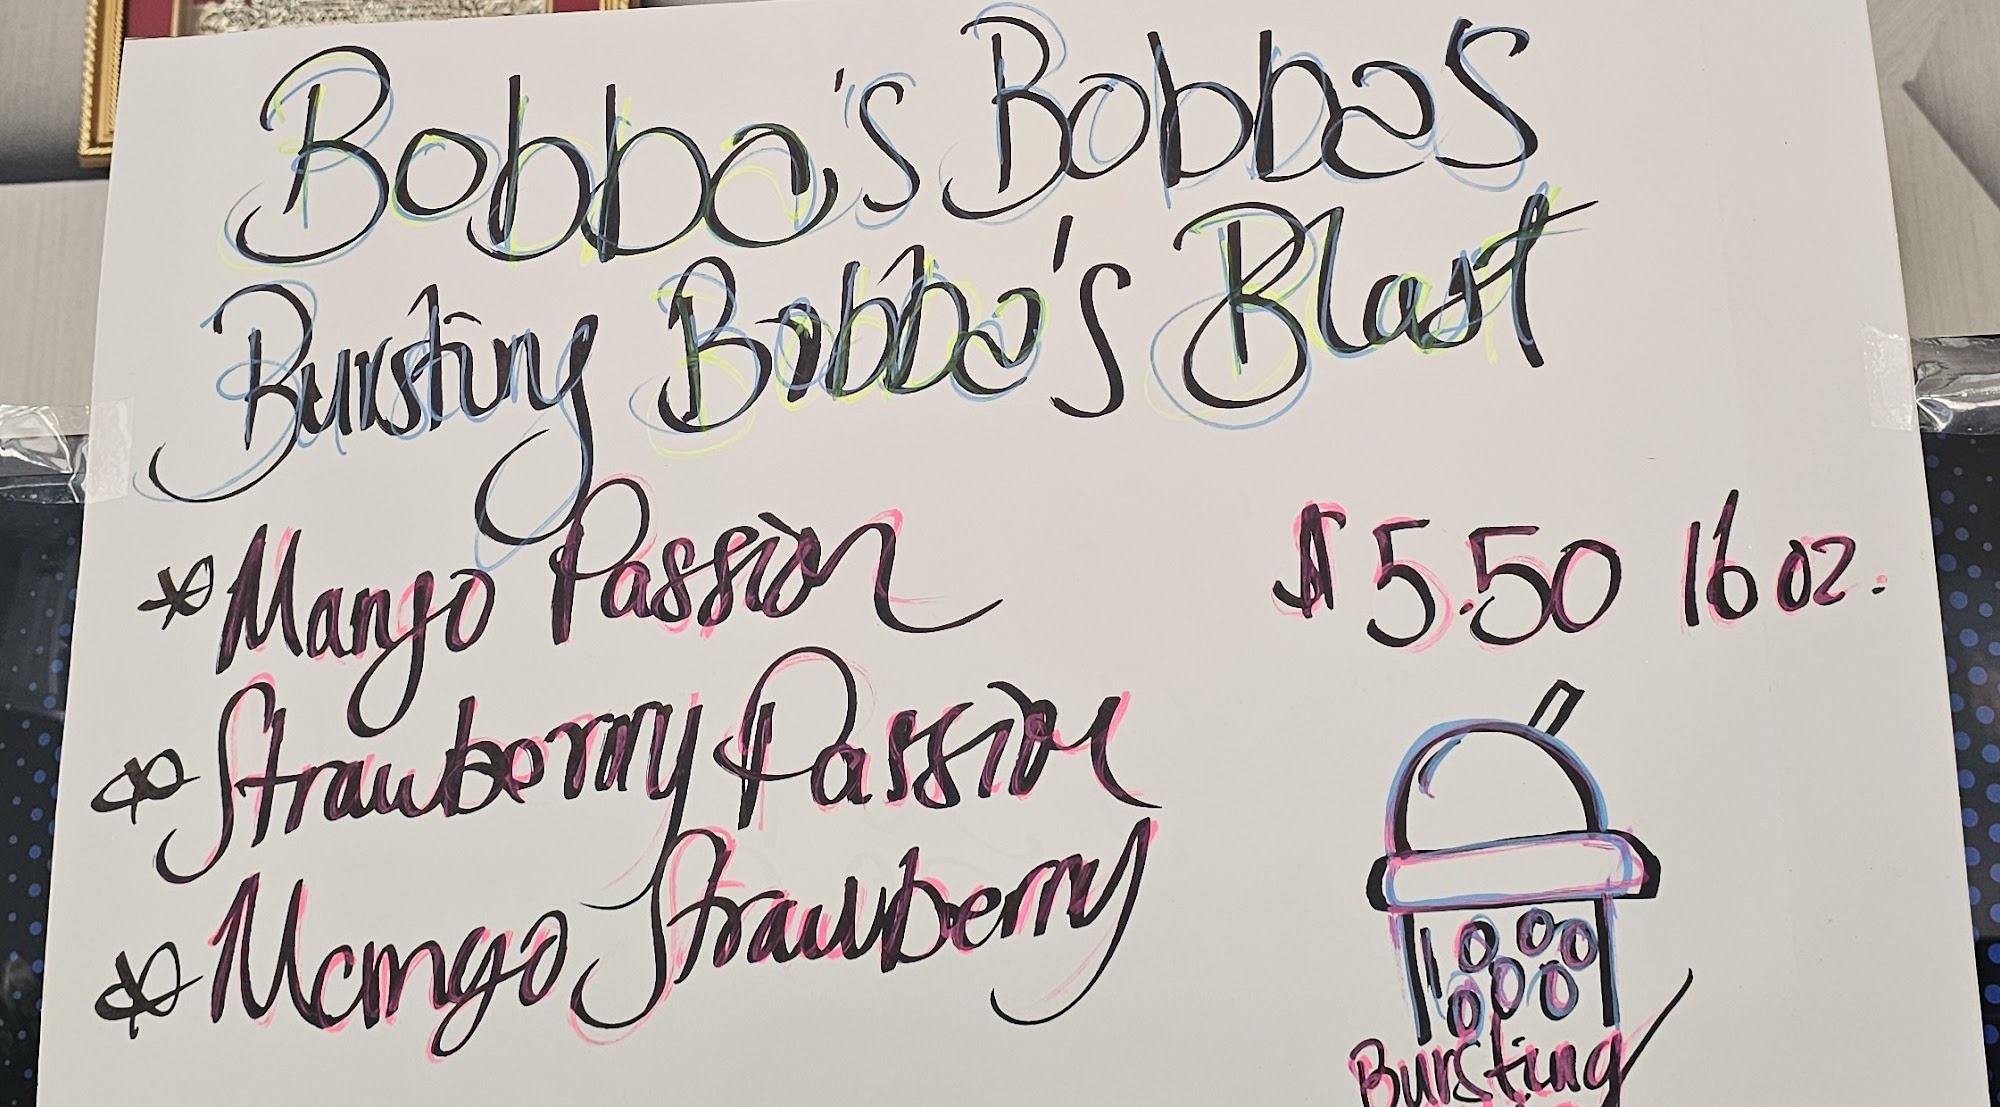 Bobba's Bobbas
Bursting Bobba's Blast
* Mango Passion $5.50 16 oz.
* Strawberry Passion
* Mango Strawberry
Bursting